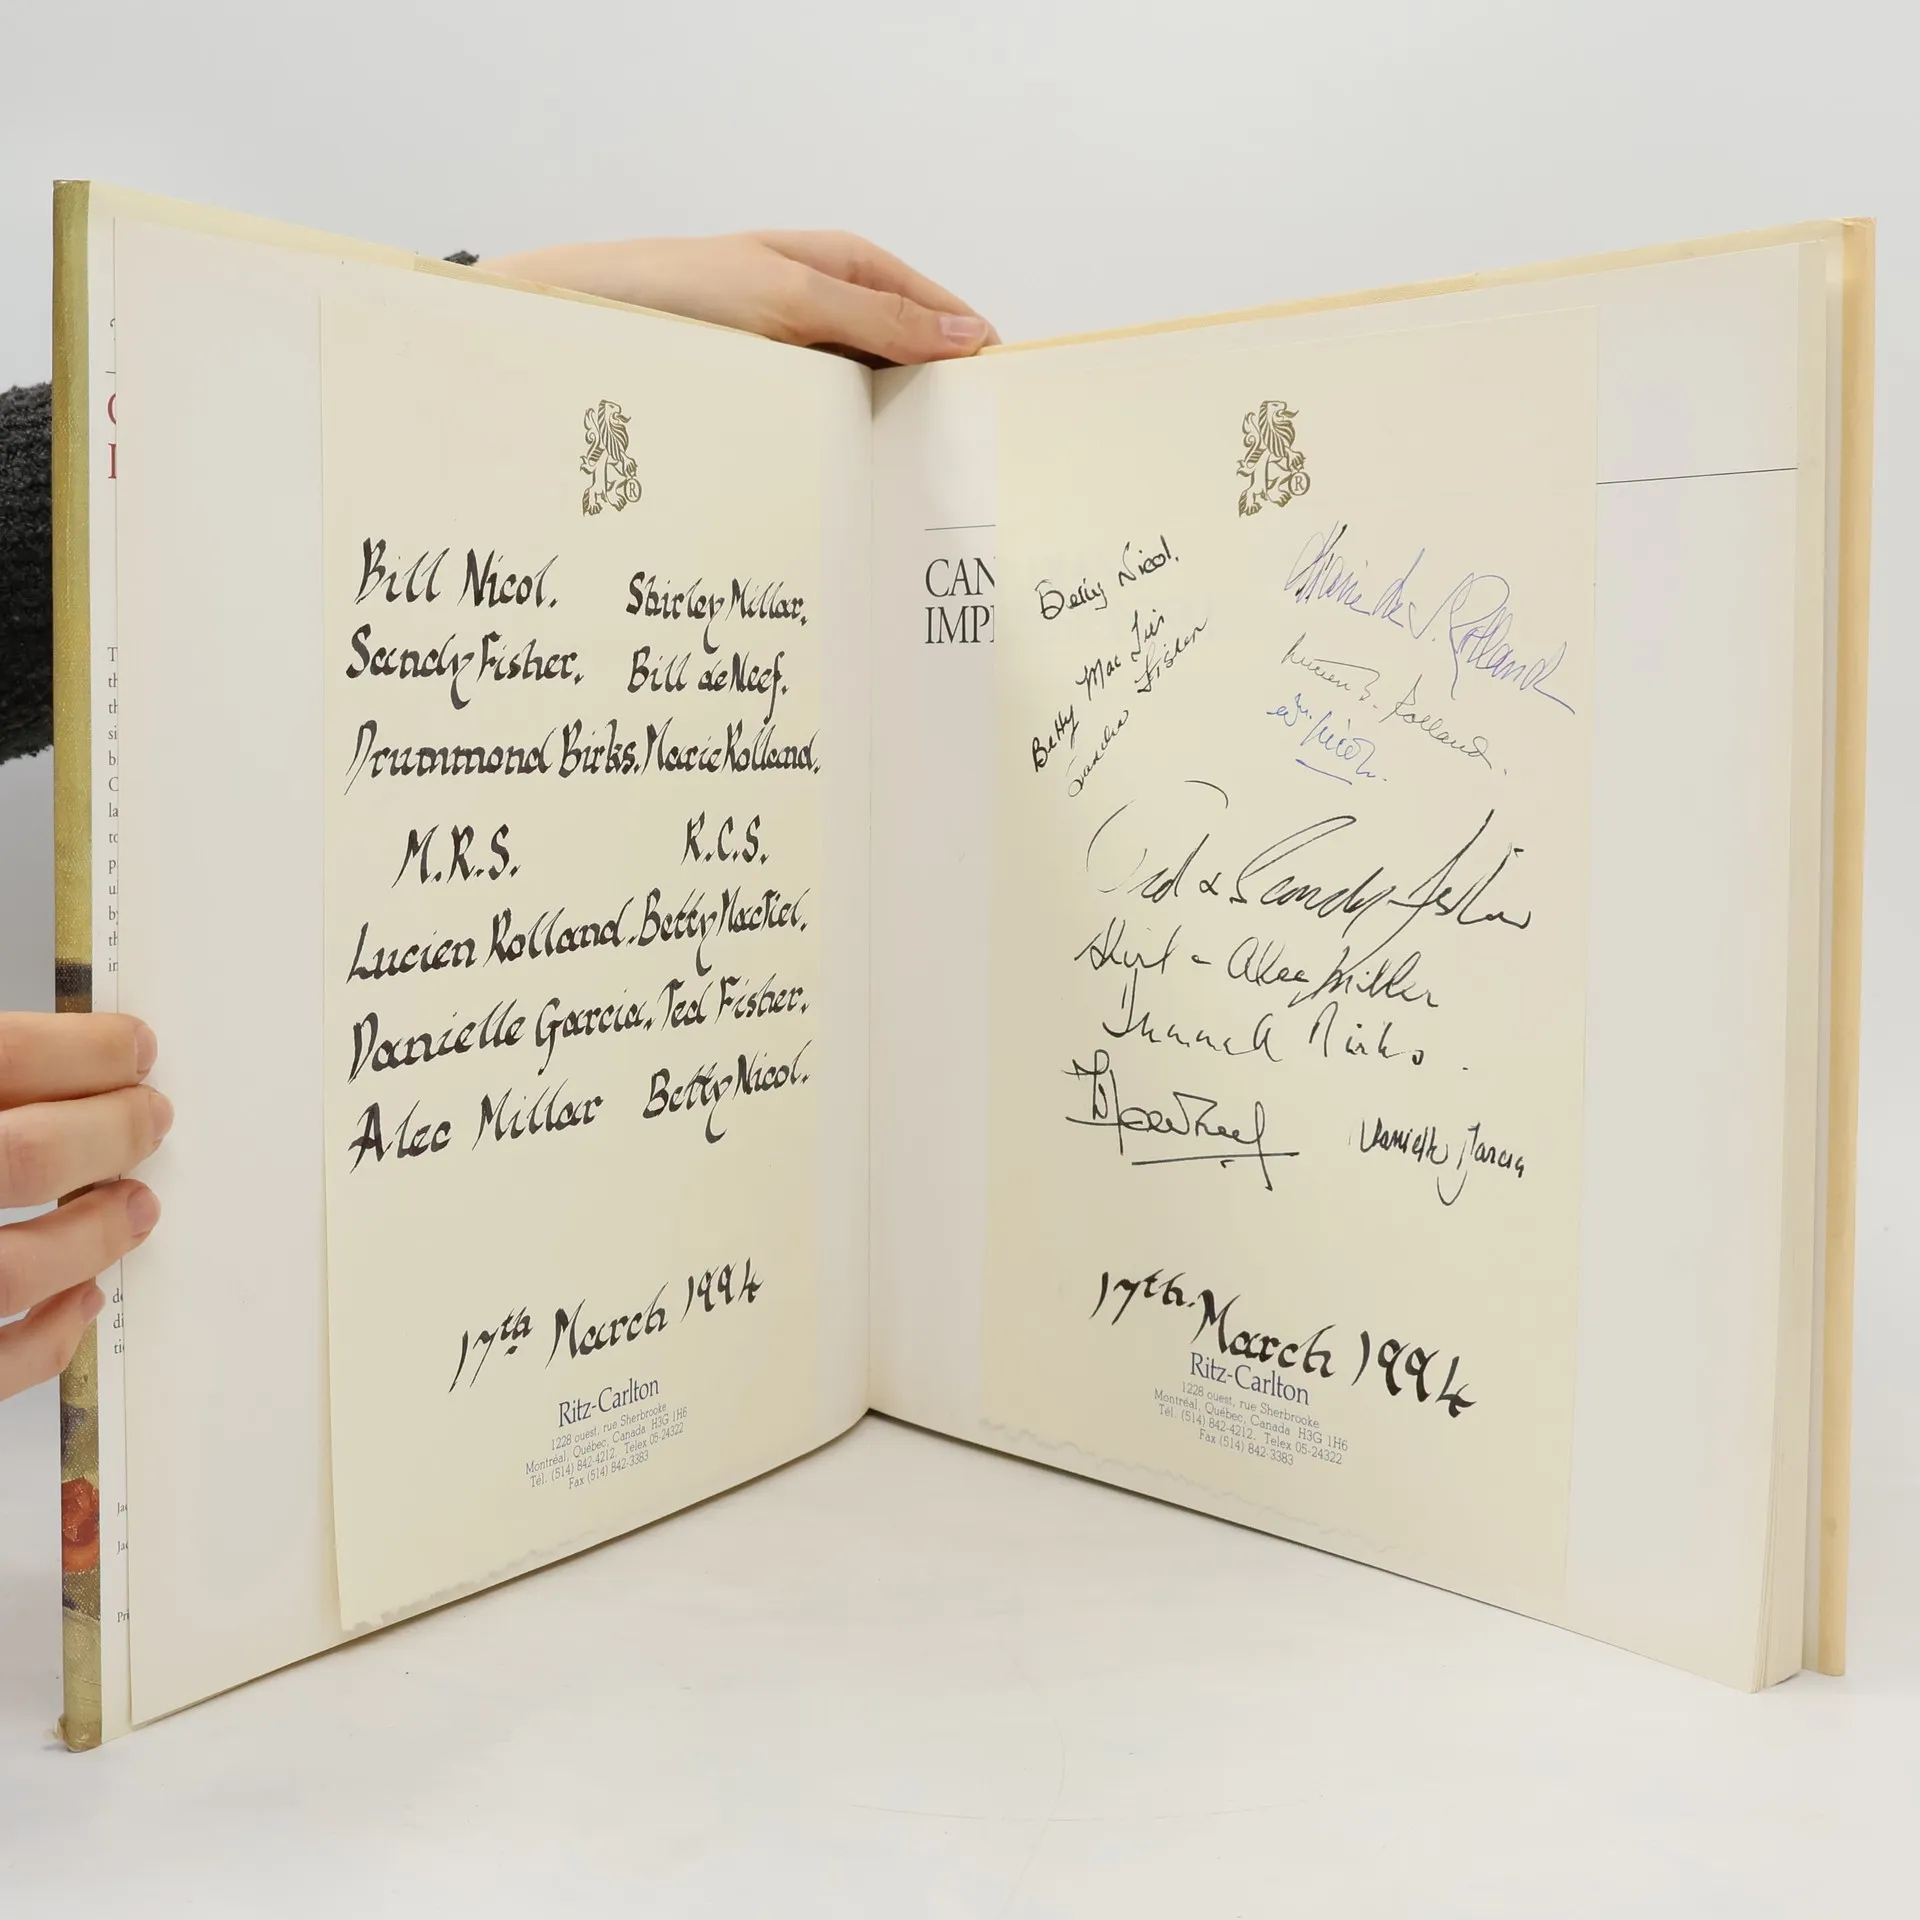 Bill Nicol. Shirley Millar.
Sandy Fisher. Bill de Neef.
Drummond Birks. Marie Rolland.
M.R.S. R.C.S.
Lucien Rolland. Betty MacTiel.
Danielle Garcia. Ted Fisher.
Alec Millar Betty Nicol.
17th March 1994
Ritz-Carlton
1228 ouest, rue Sherbrooke
Montréal, Québec, Canada H3G 1H6
Tél. (514) 842-4212 Telex 05-24322
Fax (514) 842-3383
CAN
IMP
®
Nicol.
Betty Mac
Fisher
Rolland
Rolland.
Ted & Sandy
Shirl - Alec Miller
Birks
Danielle Garcia
17th March 1994
Ritz-Carlton
1228 ouest, rue Sherbrooke
Montréal, Québec, Canada H3G 1H6
Tél. (514) 842-4212. Telex 05-24322
Fax (514) 842-3383